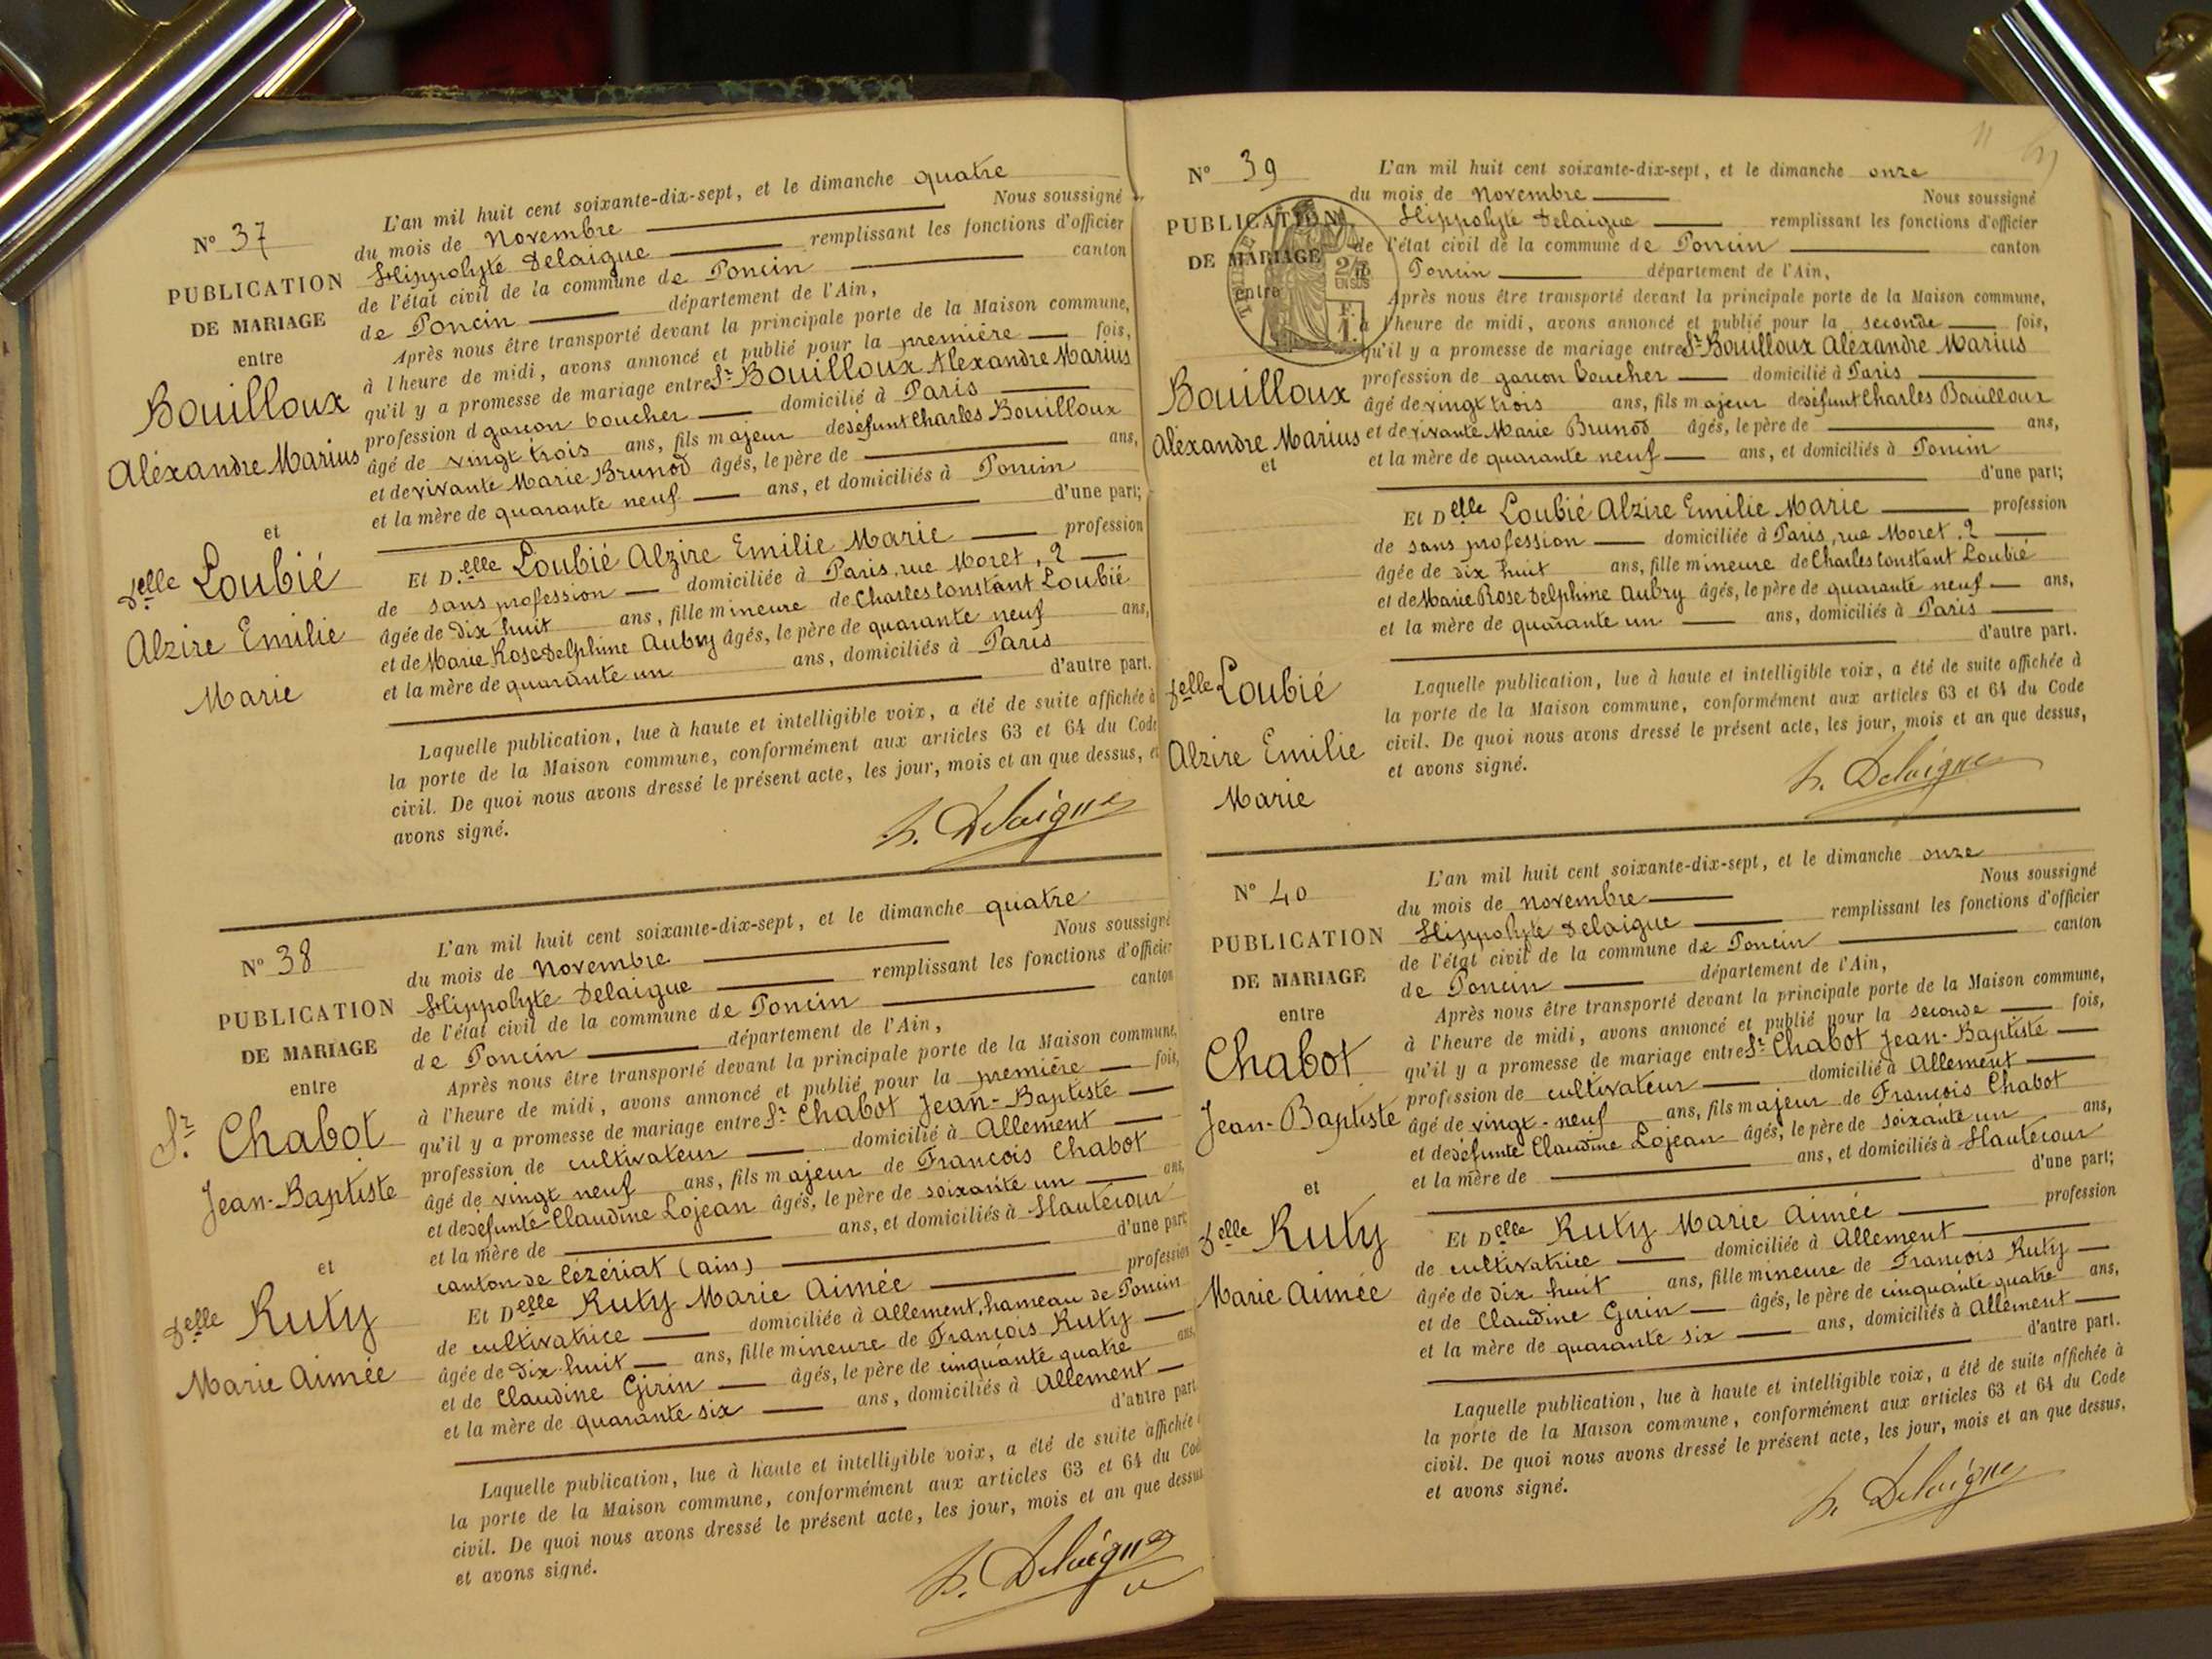 N° 37
PUBLICATION
DE MARIAGE
entre
Bouilloux
Aléxandre Marius
et
Delle Loubié
Alzire Emilie
Marie
L'an mil huit cent soixante-dix-sept, et le dimanche quatre
du mois de Novembre Nous soussigné
Hippolyte Delaigue remplissant les fonctions d'officier
de l'état civil de la commune de Poncin canton
de Poncin département de l'Ain,
Après nous être transporté devant la principale porte de la Maison commune,
à l'heure de midi, avons annoncé et publié pour la première fois,
qu'il y a promesse de mariage entre Sr Bouilloux Aléxandre Marius
profession d garcon boucher domicilié à Paris
âgé de vingt trois ans, fils majeur de défunt Charles Bouilloux
et de vivante Marie Brunod âgés, le père de ans,
et la mère de quarante neuf ans, et domiciliés à Poncin
d'une part;
Et D.elle Loubié Alzire Emilie Marie profession
de sans profession domiciliée à Paris, rue Moret, 2
âgée de dix huit ans, fille mineure de Charles Constant Loubié
et de Marie Rose Delphine Aubry âgés, le père de quarante neuf ans,
et la mère de quarante un ans, domiciliés à Paris
d'autre part.
Laquelle publication, lue à haute et intelligible voix, a été de suite affichée à
la porte de la Maison commune, conformément aux articles 63 et 64 du Code
civil. De quoi nous avons dressé le présent acte, les jour, mois et an que dessus, et
avons signé.
h. Delaigue
N° 38
PUBLICATION
DE MARIAGE
entre
Sr. Chabot
Jean-Baptiste
et
Delle Ruty
Marie Aimée
L'an mil huit cent soixante-dix-sept, et le dimanche quatre
du mois de Novembre Nous soussigné
Hippolyte Delaigue remplissant les fonctions d'officier
de l'état civil de la commune de Poncin canton
de Poncin département de l'Ain,
Après nous être transporté devant la principale porte de la Maison commune,
à l'heure de midi, avons annoncé et publié pour la première fois,
qu'il y a promesse de mariage entre Sr Chabot Jean-Baptiste
profession de cultivateur domicilié à Allement
âgé de vingt neuf ans, fils majeur de Francois Chabot
et de défunte Claudine Lojean âgés, le père de soixante un ans,
et la mère de ans, et domiciliés à Hautecour
canton de Cézériat (ain) d'une part
Et Delle Ruty Marie Aimée profession
de cultivatrice domiciliée à Allement, hameau de Poncin
âgée de dix-huit ans, fille mineure de François Ruty
et de Claudine Girin âgés, le père de cinquante quatre ans,
et la mère de quarante six ans, domiciliés à Allement
d'autre part
Laquelle publication, lue à haute et intelligible voix, a été de suite affichée
la porte de la Maison commune, conformément aux articles 63 et 64 du Cod
civil. De quoi nous avons dressé le présent acte, les jour, mois et an que dessus
et avons signé.
h. Delaigue
N° 39
PUBLICATION
DE MARIAGE
entre
Bouilloux
Aléxandre Marius
et
Delle Loubié
Alzire Emilie
Marie
L'an mil huit cent soixante-dix-sept, et le dimanche onze
du mois de Novembre Nous soussigné
Hippolyte Delaigue remplissant les fonctions d'officier
de l'état civil de la commune de Poncin canton
Poncin département de l'Ain,
Après nous être transporté devant la principale porte de la Maison commune,
à l'heure de midi, avons annoncé et publié pour la seconde fois,
qu'il y a promesse de mariage entre Sr Bouilloux Aléxandre Marius
profession de garcon boucher domicilié à Paris
âgé de vingt trois ans, fils majeur de défunt Charles Bouilloux
et de vivante Marie Brunod âgés, le père de ans,
et la mère de quarante neuf ans, et domiciliés à Poncin
d'une part;
Et Delle Loubié Alzire Emilie Marie profession
de sans profession domiciliée à Paris, rue Moret. 2
âgée de dix huit ans, fille mineure de Charles Constant Loubié
et de Marie Rose Delphine Aubry âgés, le père de quarante neuf ans,
et la mère de quarante un ans, domiciliés à Paris
d'autre part.
Laquelle publication, lue à haute et intelligible voix, a été de suite affichée à
la porte de la Maison commune, conformément aux articles 63 et 64 du Code
civil. De quoi nous avons dressé le présent acte, les jour, mois et an que dessus,
et avons signé.
h. Delaigue
N° 40
PUBLICATION
DE MARIAGE
entre
Chabot
Jean-Baptiste
et
Delle Ruty
Marie Aimée
L'an mil huit cent soixante-dix-sept, et le dimanche onze
du mois de novembre Nous soussigné
Hippolyte Delaigue remplissant les fonctions d'officier
de l'état civil de la commune de Poncin canton
de Poncin département de l'Ain,
Après nous être transporté devant la principale porte de la Maison commune,
à l'heure de midi, avons annoncé et publié pour la seconde fois,
qu'il y a promesse de mariage entre Sr Chabot Jean-Baptiste
profession de cultivateur domicilié à Allement
âgé de vingt-neuf ans, fils majeur de François Chabot
et de défunte Claudine Lojean âgés, le père de soixante un ans,
et la mère de ans, et domiciliés à Hautecour
d'une part;
Et Delle Ruty Marie Aimée profession
de cultivatrice domiciliée à Allement
âgée de dix huit ans, fille mineure de François Ruty
et de Claudine Girin âgés, le père de cinquante quatre ans,
et la mère de quarante six ans, domiciliés à Allement
d'autre part.
Laquelle publication, lue à haute et intelligible voix, a été de suite affichée à
la porte de la Maison commune, conformément aux articles 63 et 64 du Code
civil. De quoi nous avons dressé le présent acte, les jour, mois et an que dessus,
et avons signé.
h. Delaigue